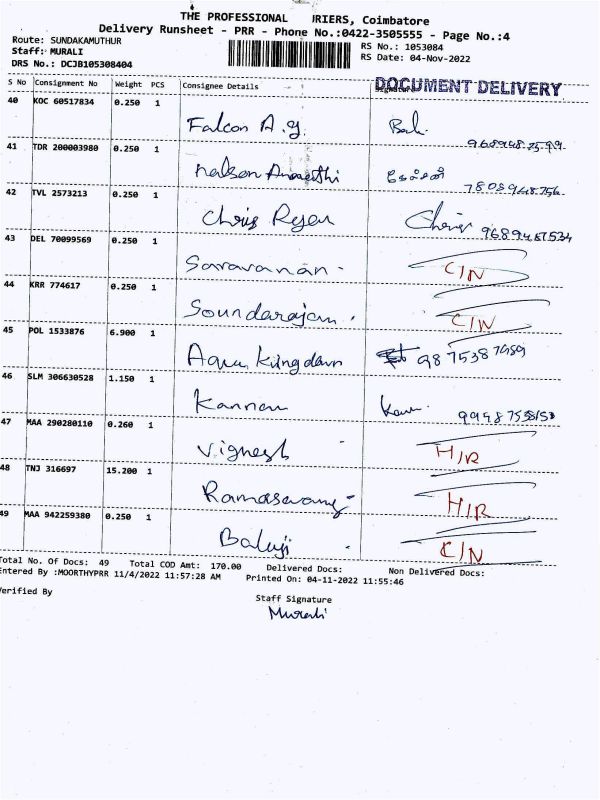 THE PROFESSIONAL URIERS, Coimbatore
Delivery Runsheet - PRR - Phone No.:0422-3505555 - Page No.:4
Route: SUNDAKAMUTHUR
RS No.: 1053084
Staff: MURALI
RS Date: 04-Nov-2022
DRS No.: DCJB105308404
S No Consignment No Weight PCS Consignee Details DOCUMENT DELIVERY
40 KOC 60517834 0.250 1 Falcon A.g.
41 TDR 200003980 0.250 1 nelson
42 TVL 2573213 0.250 1 Chris Rejen
43 DEL 70099569 0.250 1 Saravanan - C/N
44 KRR 774617 0.250 1 Soundarajan. C/N
45 POL 1533876 6.900 1 Aqua Kingdom
46 SLM 306630528 1.150 1 Kannan
47 MAA 290280110 0.260 1 Vignesh H/R
48 TNJ 316697 15.200 1 Ramaswamy H/R
49 MAA 942259380 0.250 1 Balaji C/N
Total No. Of Docs: 49 Total COD Amt: 170.00 Delivered Docs: Non Delivered Docs:
Entered By :MOORTHYPRR 11/4/2022 11:57:28 AM Printed On: 04-11-2022 11:55:46
Verified By
Staff Signature
Murali